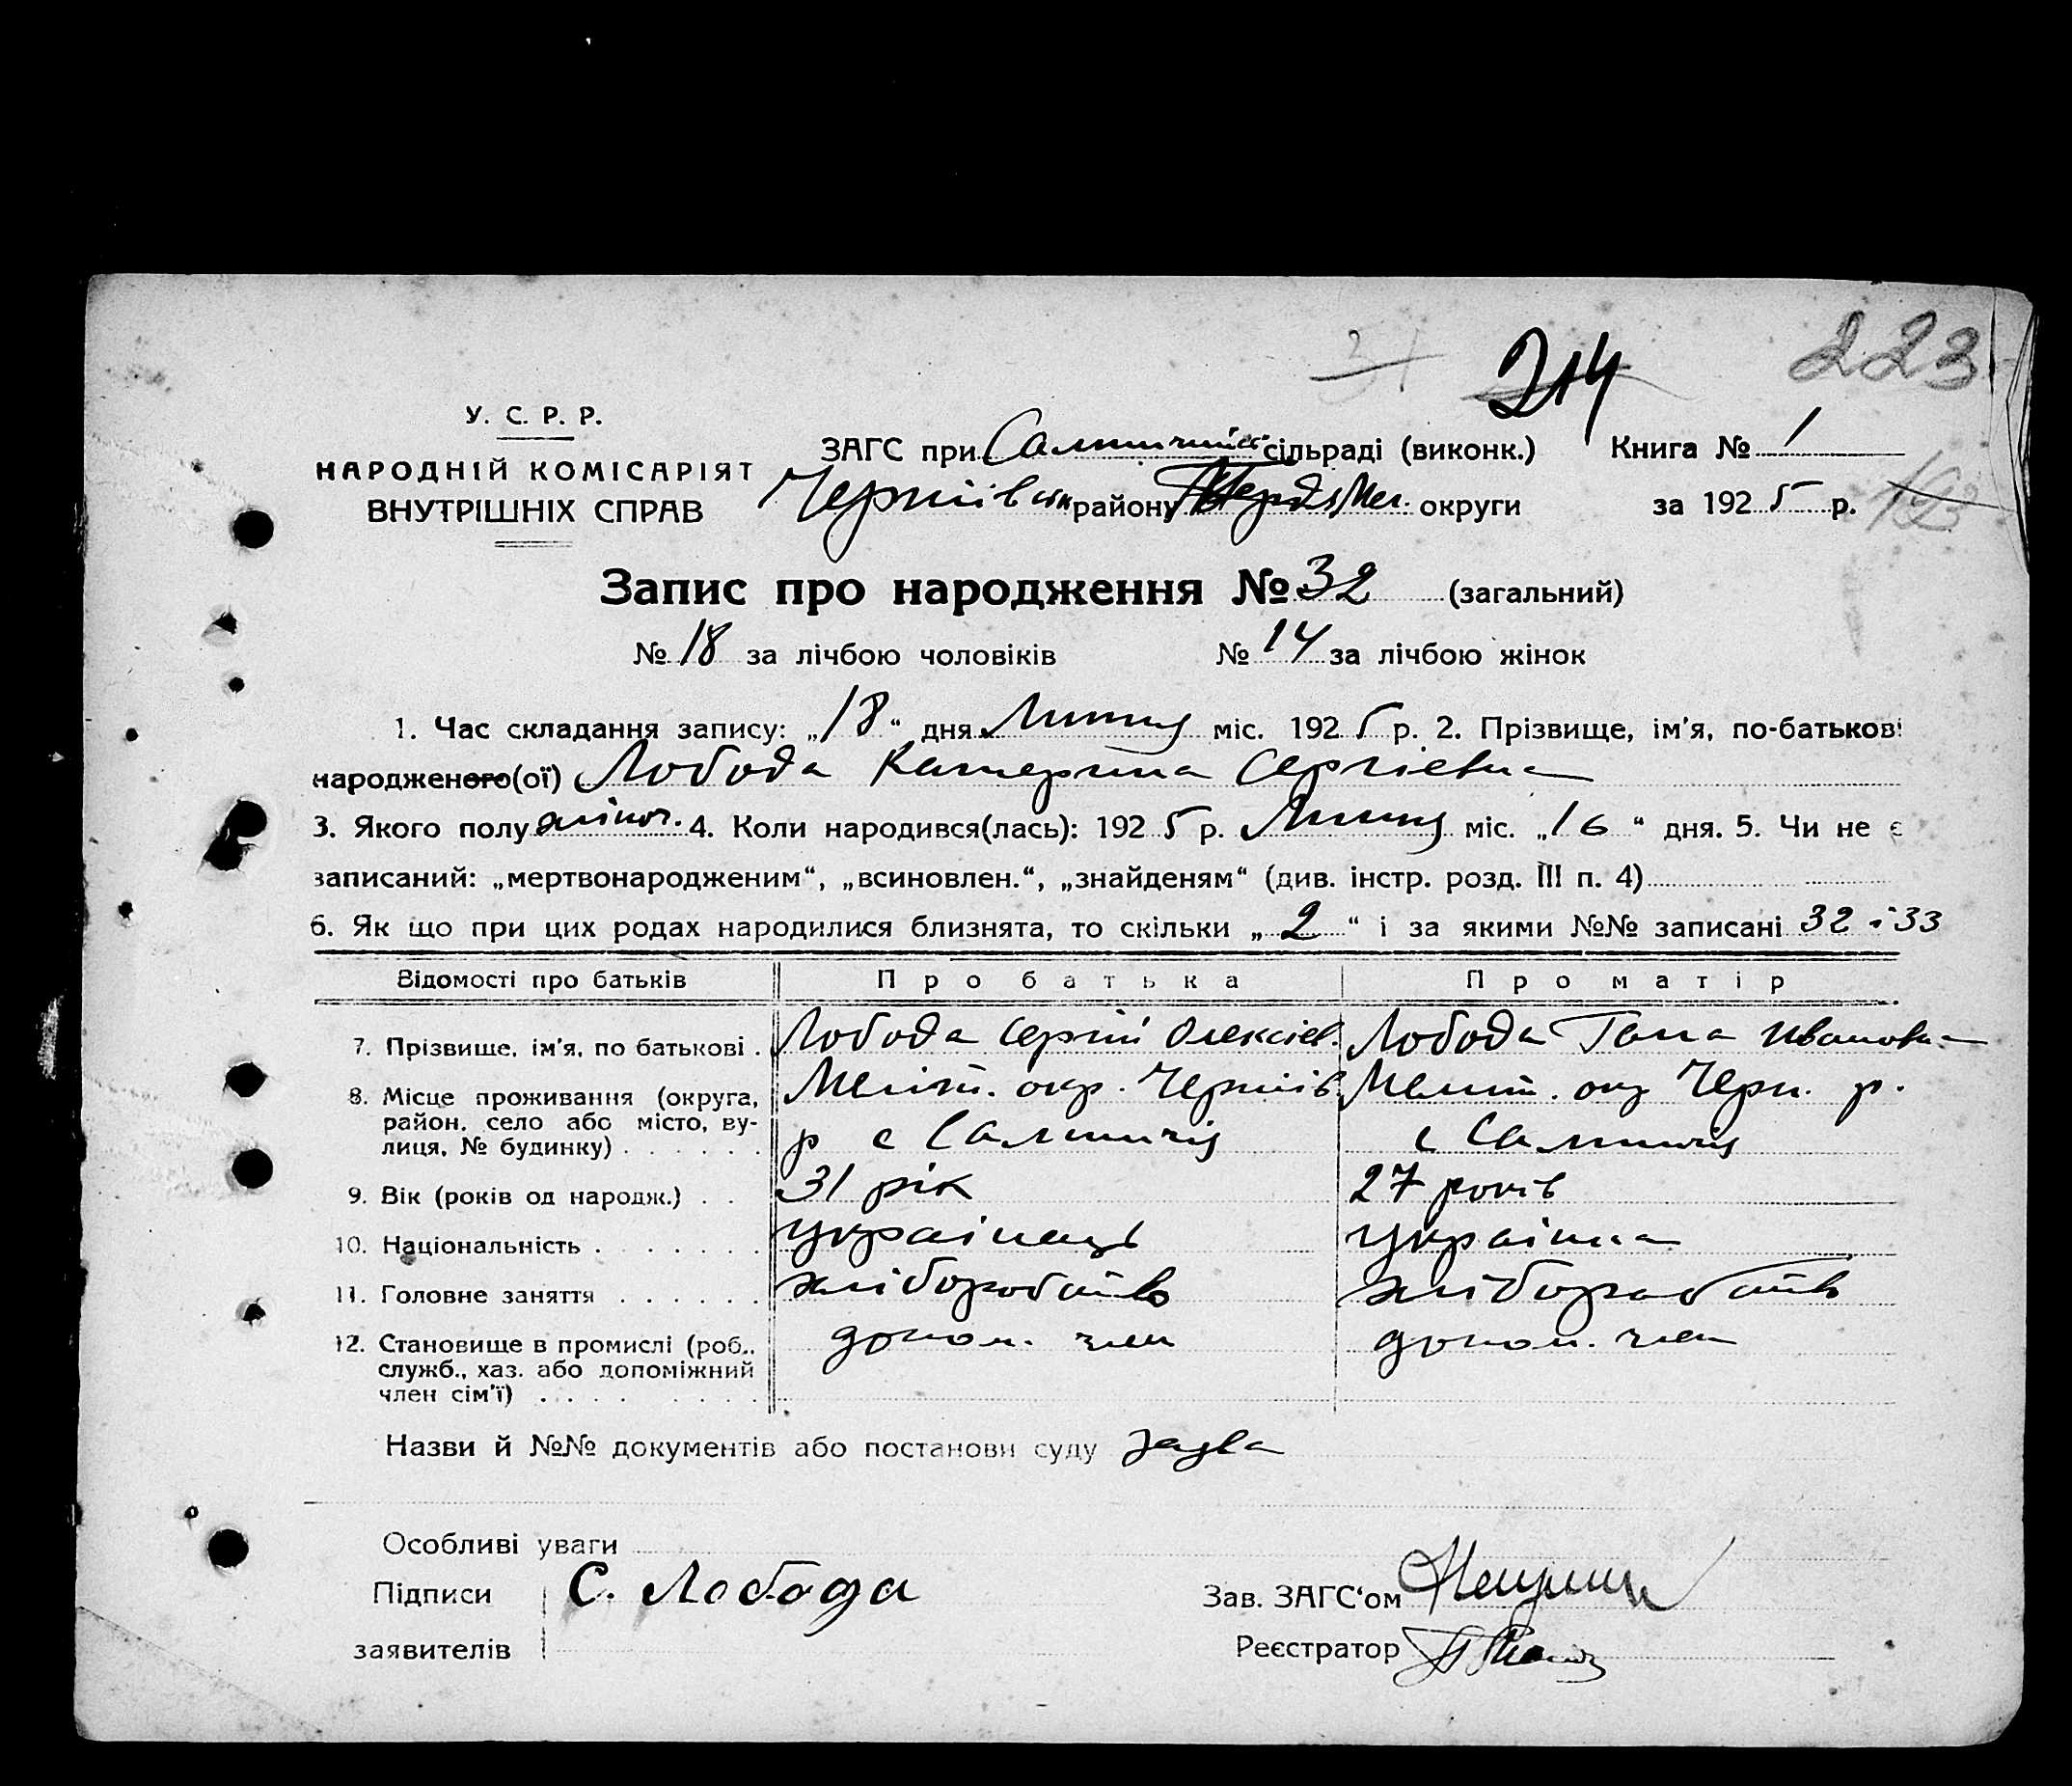 31 214 223
У. С. Р. Р.
НАРОДНІЙ КОМІСАРІЯТ
ВНУТРІШНІХ СПРАВ
ЗАГС при сільраді (виконк.) Книга № 1
Чернігівськ району Мел. округи за 1925 р. 193
Запис про народження № 32 (загальний)
№ 18 за лічбою чоловіків № 14 за лічбою жінок
1. Час складання запису: „18“ дня Липня міс. 1925 р. 2. Прізвище, ім'я, по-батькові
народженого(ої) Лобода Катерина Сергієвна
3. Якого полу жіноч. 4. Коли народився(лась): 1925 р. Липня міс. „16“ дня. 5. Чи не є
записаний: „мертвонародженим“, „всиновлен.“, „знайденям“ (див. інстр. розд. III п. 4)
6. Як що при цих родах народилися близнята, то скільки „2“ і за якими №№ записані 32 і 33
Відомості про батьків Про батька Про матір
7. Прізвище, ім'я, по батькові . Лобода Сергій Олексієв. Лобода Гана Ивановна
8. Місце проживання (округа, район, село або місто, ву-лиця, № будинку) . . . . . .
Меліт. окр. Черніів. Меліт. окр Черн. р.
р с Салтичія с Салтичія
9. Вік (років од народж.) . . 31 рік 27 років
10. Національність . . . . . . . українець українка
11. Головне заняття . . . . . . хліборобство хліборобство
12. Становище в промислі (роб., служб., хаз. або допоміжний член сім'ї) . . . . . . . .
допом. член допом. член
Назви й №№ документів або постанови суду заява
Особливі уваги
Підписи С. Лобода Зав. ЗАГС'ом
заявителів Реєстратор